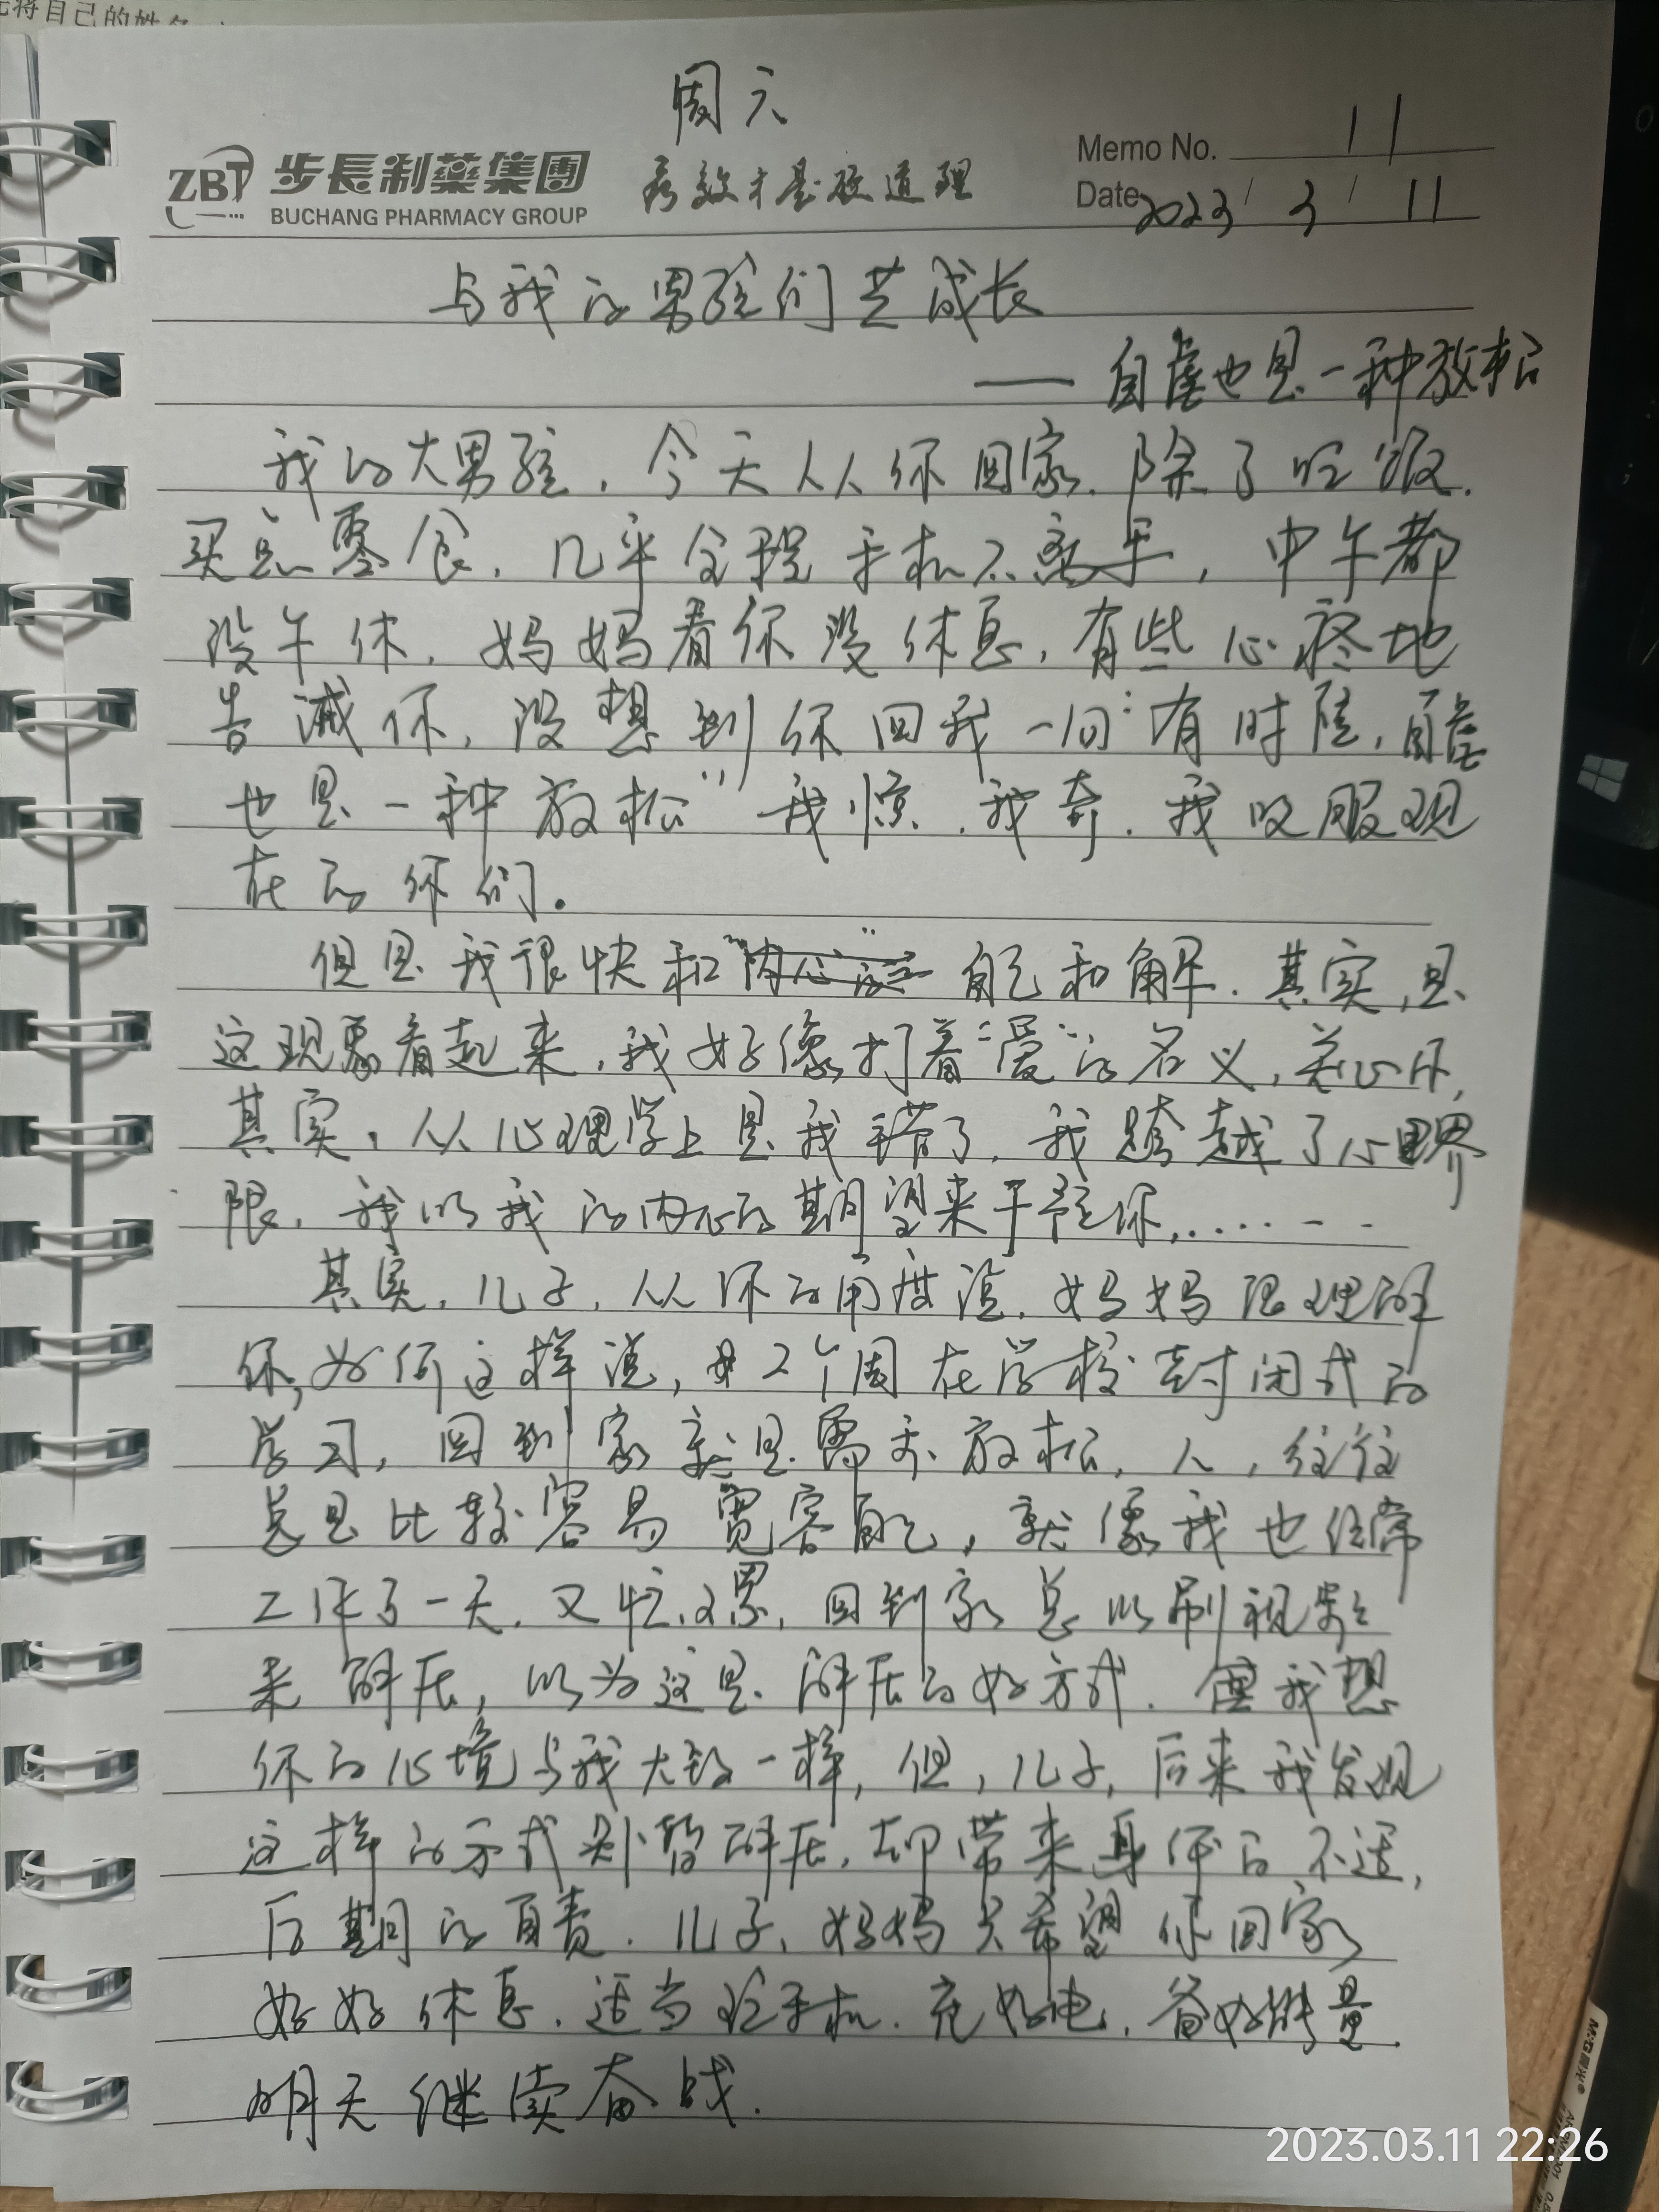 先将自己的姓名
周六
Memo No. 11
ZBT 步長制藥集團 疗效才是硬道理
BUCHANG PHARMACY GROUP
Date 2023/3/11
与我的男孩们共成长
——自虐也是一种放松
我的大男孩,今天从你回家,除了吃饭,
买点零食,几乎全程手机不离手,中午都
没午休,妈妈看你没休息,有些心疼地
告诫你,没想到你回我一句:"有时候,自虐
也是一种放松"我惊,我奇,我叹服现
在的你们。
但是我很快和自己和解,其实,从
这现象看起来,我好像打着"爱"的名义,关心你,
其实,从心理学上是我错了,我跨越了心里界
限,我以我的内心的期望来干预你,……
其实,儿子,从你的角度说,妈妈很理解
你,为何这样说,每2个周在学校封闭式的
学习,回到家就是需要放松,人,往往
总是比较容易宽容自己,就像我也经常
工作了一天,又忙又累,回到家总以刷视频
来解压,以为这是解压的好方式,但我想
你的心境与我大致一样,但,儿子,后来我发现
这样的方式短暂解压,却带来身体的不适,
后期的自责,儿子,妈妈只希望你回家
好好休息,适当玩手机,充好电,备好能量,
明天继续奋战.
2023.03.11 22:26